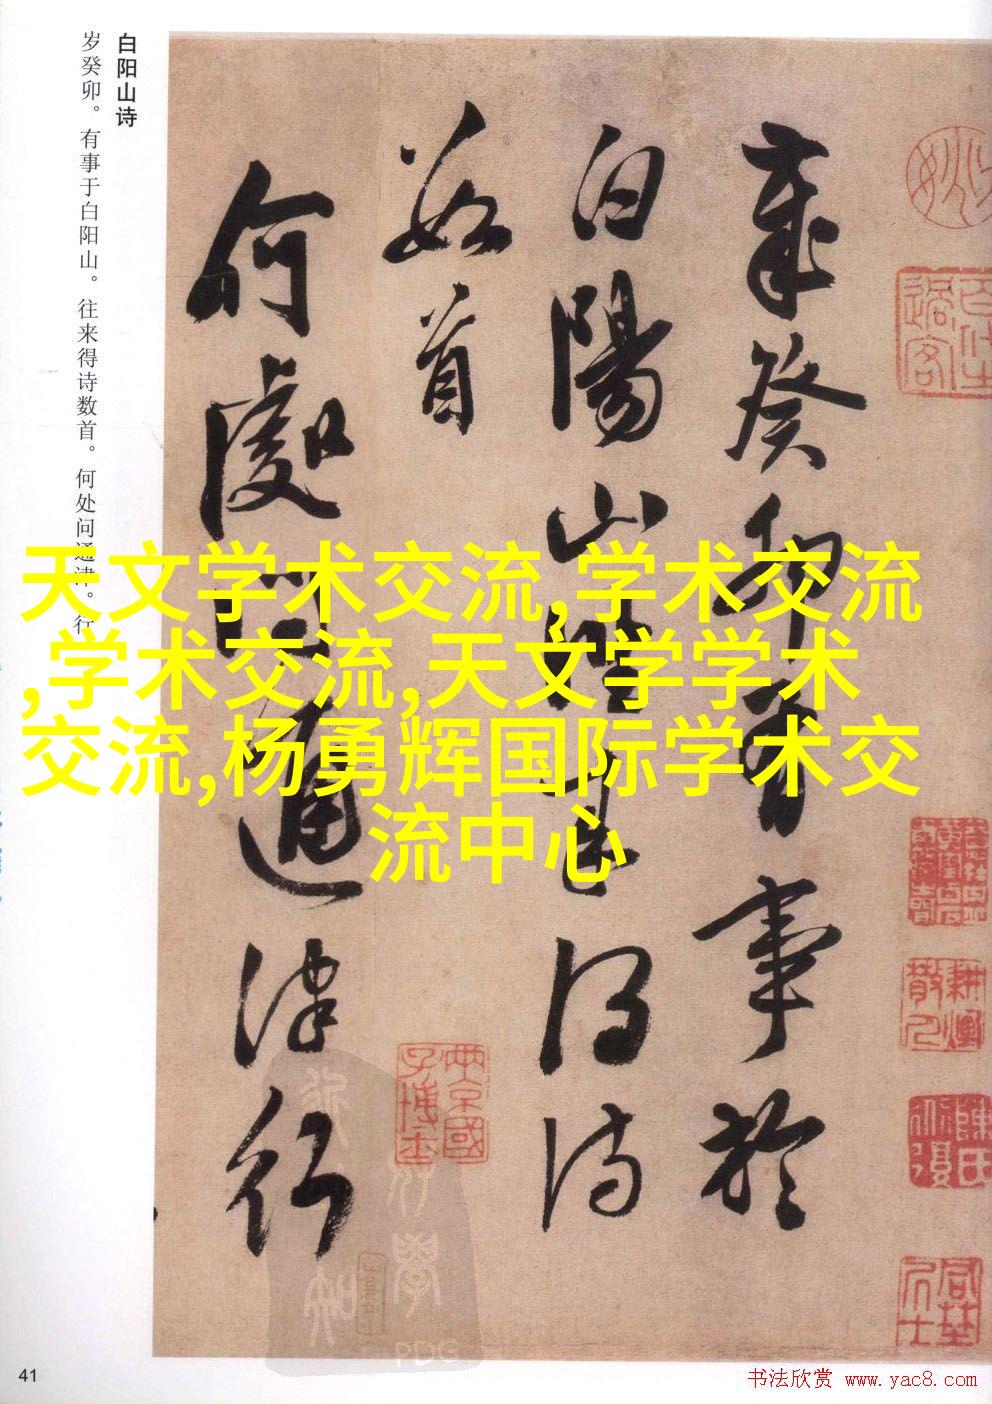 白阳山诗
岁癸卯。有事于白阳山。往来得诗数首。何处问通津。行
歲癸卯有事於
白陽山往来得诗
数首
何處问通津行
天文学术交流,学术交流
,学术交流,天文学学术
交流,杨勇辉国际学术交
流中心
41
书法欣赏 www.yac8.com